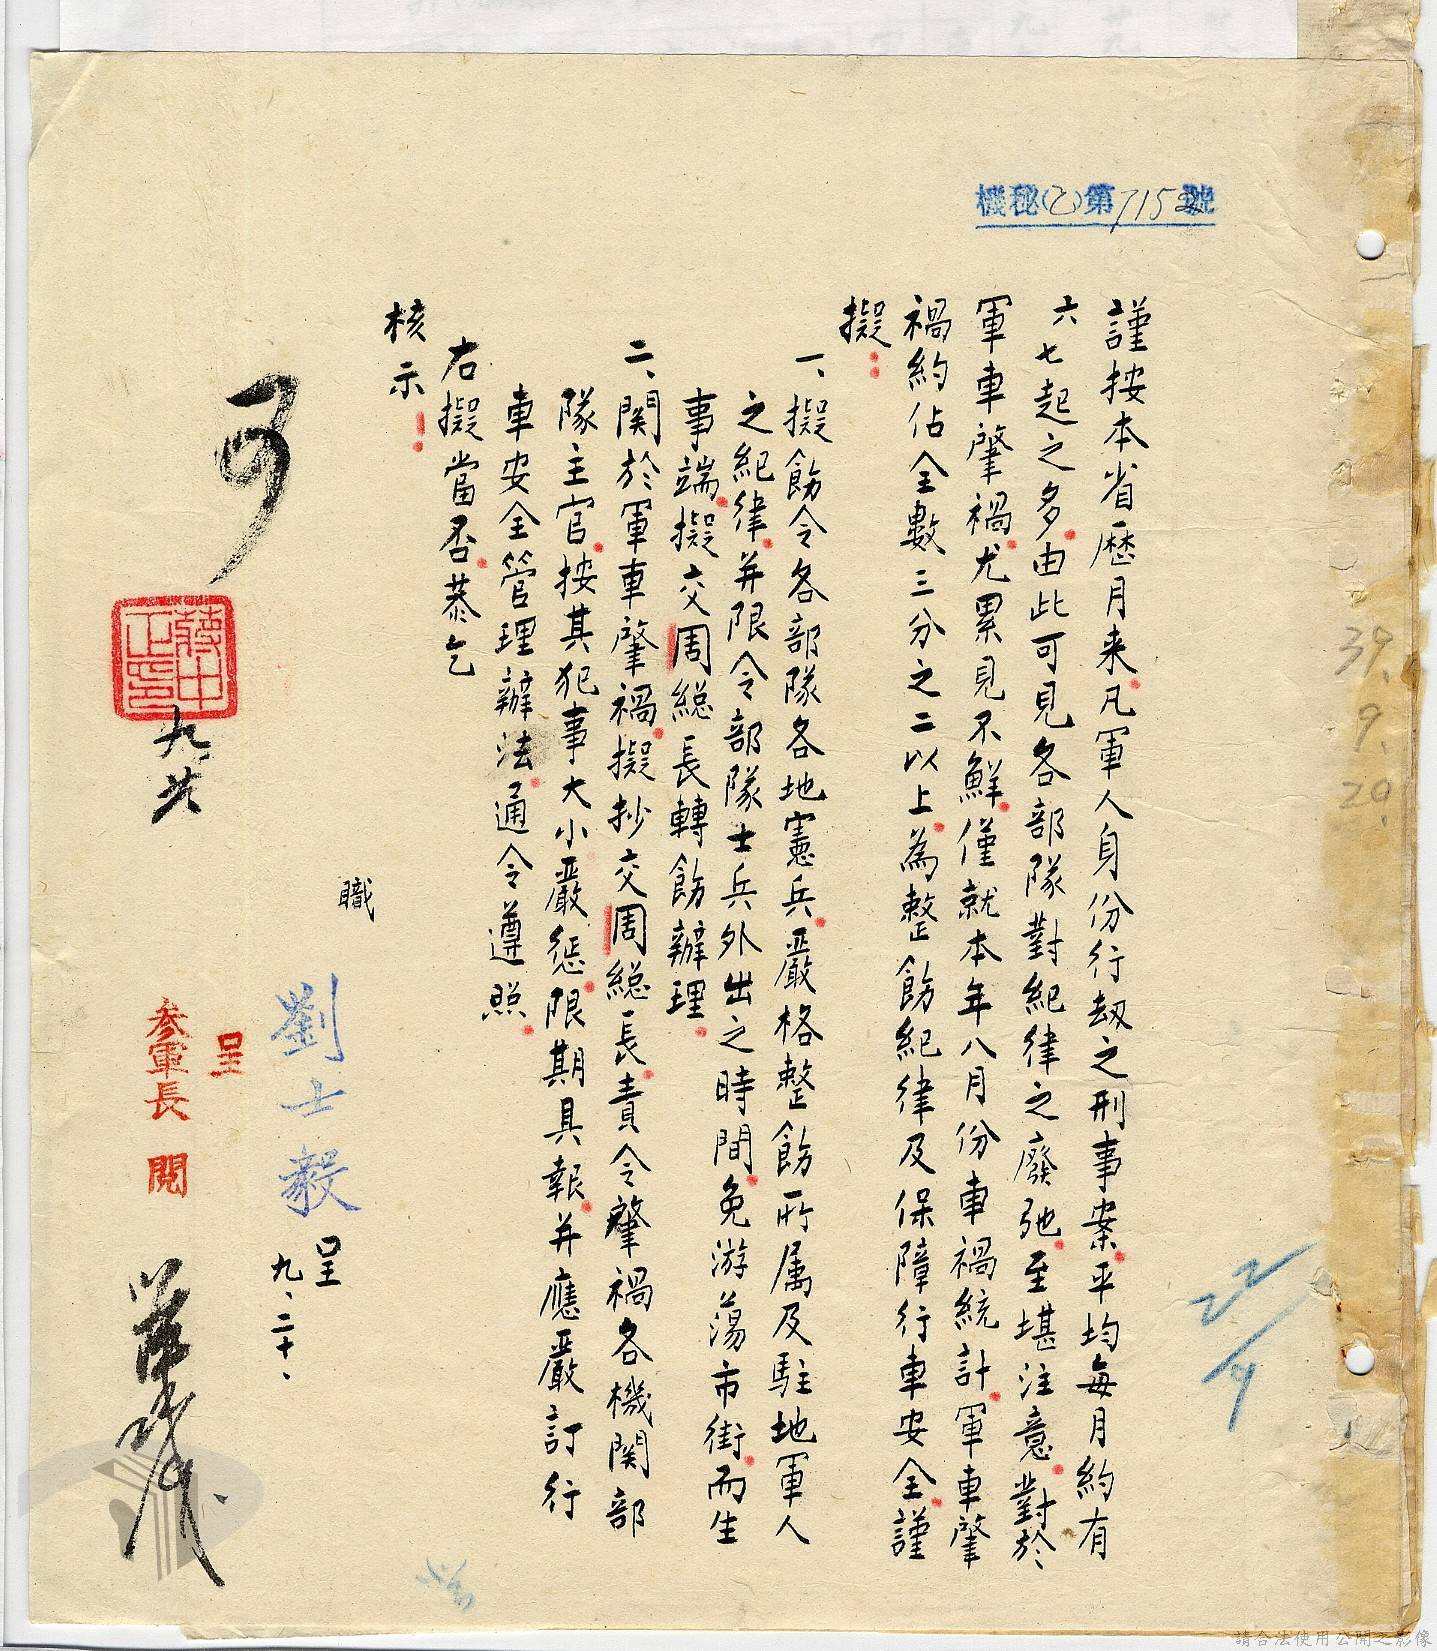 機秘(乙)第7152號
謹按本省歷月来凡軍人身份行劫之刑事案平均每月約有
六七起之多由此可見各部隊對紀律之廢弛至堪注意對於
軍車肇禍尤累見不鮮僅就本年八月份車禍統計軍車肇
禍約佔全數三分之二以上為整飭紀律及保障行車安全謹
擬：
一、擬飭令各部隊各地憲兵嚴格整飭所属及駐地軍人
之紀律并限令部隊士兵外出之時間免游蕩市街而生
事端擬交周總長轉飭辦理
二、関於軍車肇禍擬抄交周總長責令肇禍各機関部
隊主官按其犯事大小嚴懲限期具報并應嚴訂行
車安全管理辦法通令遵照
右擬當否恭乞
核示！
職
劉士毅
呈
九、二十、
呈
參軍長 閱
可
蔣中正印
九廿
39.
9.
20.
22/9
請合法使用公開之影像